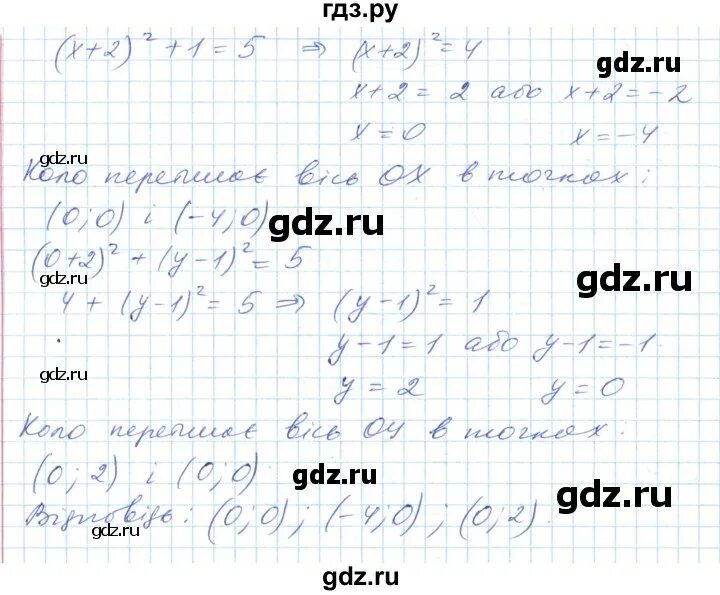 гдз.ру
(x+2)² + 1 = 5 ⇒ (x+2)² = 4
gdz.ru
x+2 = 2 або x+2 = -2
x = 0 x = -4
gdz.ru
Коло перетинає вісь OX в точках:
(0; 0) і (-4; 0)
gdz.ru
(0+2)² + (y-1)² = 5
gdz.ru
4 + (y-1)² = 5 ⇒ (y-1)² = 1
y-1 = 1 або y-1 = -1
gdz.ru
y = 2 y = 0
Коло перетинає вісь OY в точках:
(0; 2) і (0; 0)
gdz.ru
gdz.ru
Відповідь: (0; 0); (-4; 0); (0; 2).
gdz.ru
gdz.ru